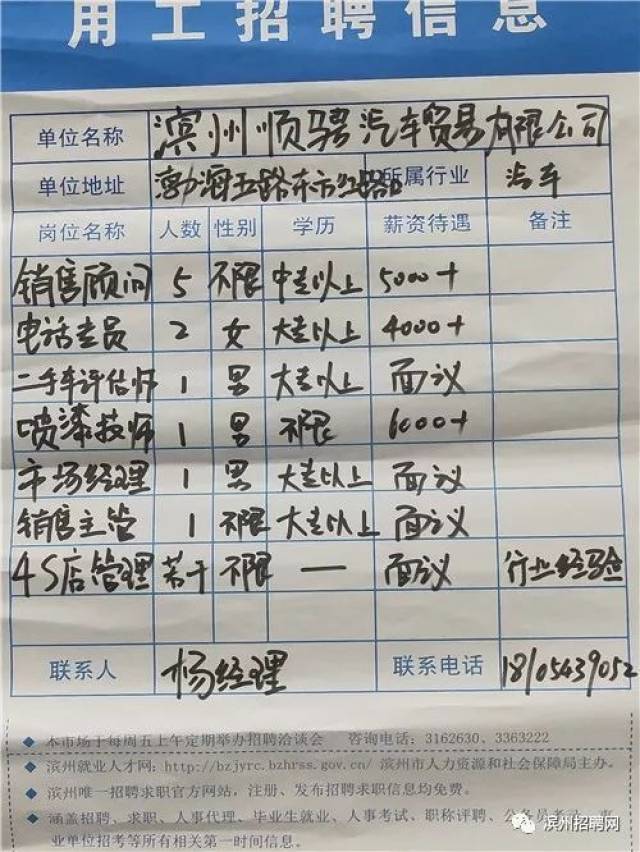 用工招聘信息
单位名称 滨州顺骋汽车贸易有限公司
单位地址 渤海五路东方红路口 所属行业 汽车
岗位名称 人数 性别 学历 薪资待遇 备注
销售顾问 5 不限 中专以上 5000+
电话专员 2 女 大专以上 4000+
二手车评估师 1 男 大专以上 面议
喷漆技师 1 男 不限 6000+
市场经理 1 男 大专以上 面议
销售主管 1 不限 大专以上 面议
4S店管理 若干 不限 — 面议 行业经验
联系人 杨经理 联系电话 18105439052
◆ 本市场于每周五上午定期举办招聘洽谈会 咨询电话：3162630、3363222
◆ 滨州就业人才网：http://bzjyrc.bzhrss.gov.cn/ 滨州市人力资源和社会保障局主办。
◆ 滨州唯一招聘求职官方网站，注册、发布招聘求职信息均免费。
◆ 涵盖招聘、求职、人事代理、毕业生就业、人事考试、职称评聘、公务员考录、事
业单位招考等所有相关第一时间信息。
滨州招聘网